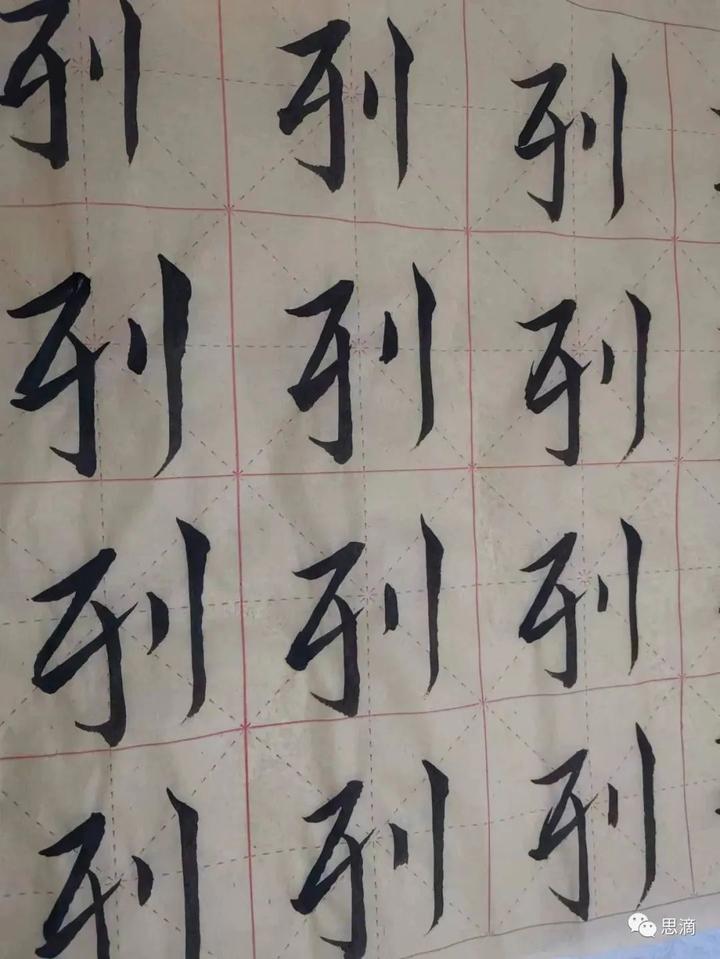 列 列 列
列 列 列
列 列 列
列 列 列
思滴